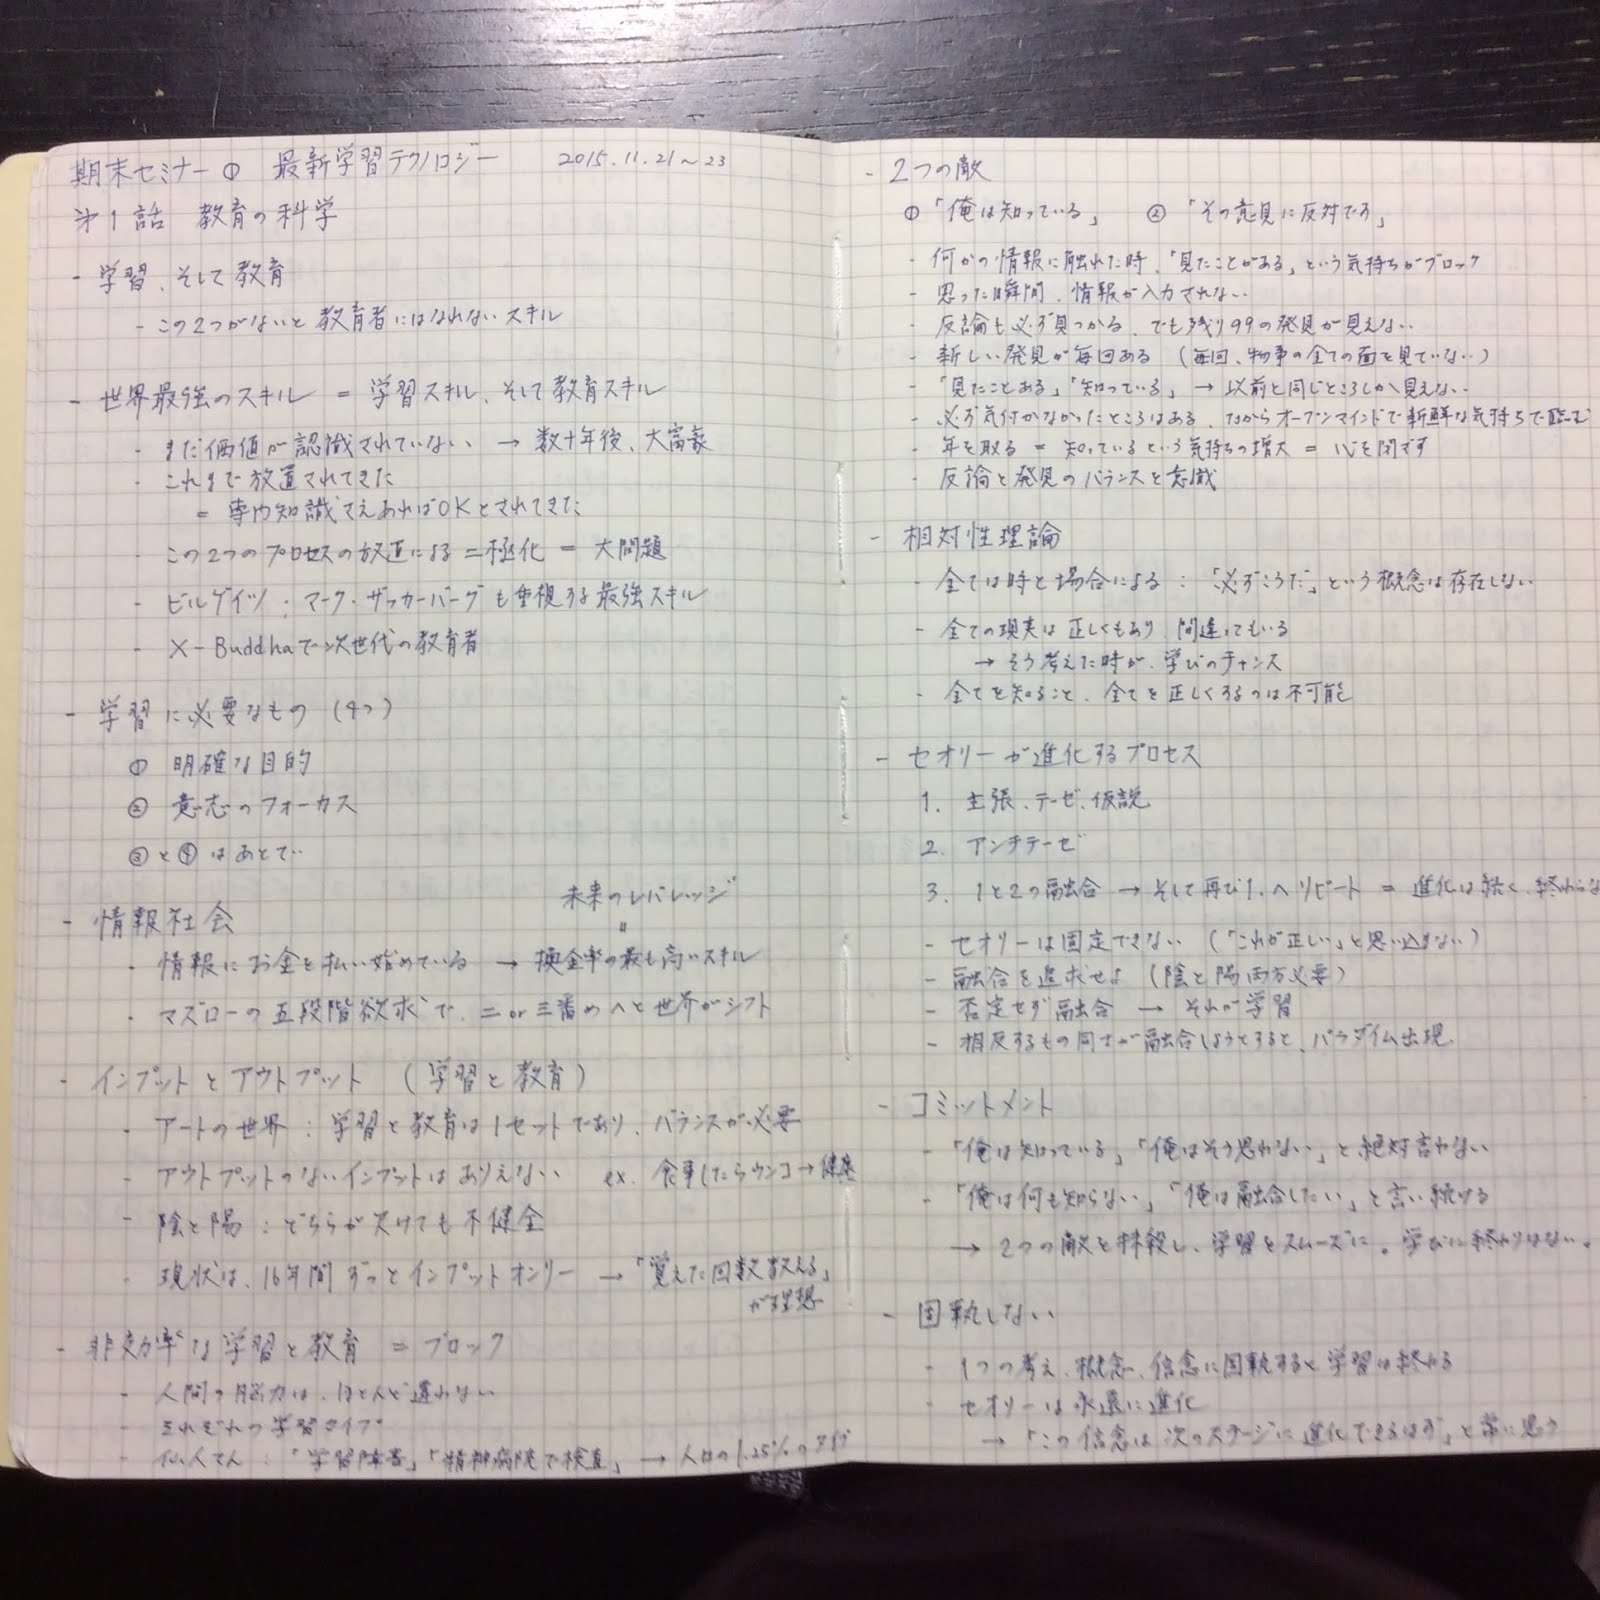 期末セミナー① 最新学習テクノロジー 2015.11.21〜23
第1話 教育の科学
- 学習、そして教育
- この2つがないと教育者にはなれないスキル
- 世界最強のスキル = 学習スキル、そして教育スキル
- まだ価値が認識されていない → 数十年後、大富豪
- これまで放置されてきた
= 専門知識さえあればOKとされてきた
- この2つのプロセスの放置による二極化 = 大問題
- ビルゲイツ・マーク・ザッカーバーグも重視する最強スキル
- X-Buddhaで次世代の教育者
- 学習に必要なもの (4つ)
① 明確な目的
② 意志のフォーカス
③と④はあとで
- 情報社会
未来のレバレッジ
〃
- 情報にお金を払い始めている → 換金率の最も高いスキル
- マズローの五段階欲求で、二or三番めへと世界がシフト
- インプットとアウトプット (学習と教育)
- アートの世界:学習と教育は1セットであり、バランスが必要
- アウトプットのないインプットはありえない ex. 食事したらウンコ→健康
- 陰と陽:どちらが欠けても不健全
- 現状は、16年間ずっとインプットオンリー → 「覚えた回数教える」
が理想
- 非効率な学習と教育 = ブロック
- 人間の脳力は、ほとんど違わない
- それぞれの学習タイプ
- 仙人さん:「学習障害」「精神病院で検査」 → 人口の1.25%のタイプ
- 2つの敵
①「俺は知っている」 ②「その意見に反対です」
- 何かの情報に触れた時、「見たことがある」という気持ちがブロック
- 思った瞬間、情報が入力されない
- 反論も必ず見つかる、でも残り99の発見が見えない
- 新しい発見が毎回ある (毎回、物事の全ての面を見ていない)
- 「見たことある」「知っている」 → 以前と同じところしか見えない
- 必ず気付かなかったところはある、だからオープンマインドで新鮮な気持ちで臨む
- 年を取る = 知っているという気持ちの増大 = 心を閉ざす
- 反論と発見のバランスを意識
- 相対性理論
- 全ては時と場合による:「必ずこうだ」という概念は存在しない
- 全ての現実は正しくもあり、間違ってもいる
→ そう考えた時が、学びのチャンス
- 全てを知ること、全てを正しくするのは不可能
- セオリーが進化するプロセス
1. 主張、テーゼ、仮説
2. アンチテーゼ
3. 1と2の融合 → そして再び1.へリピート = 進化は続く、終わらな
- セオリーは固定できない (「これが正しい」と思い込まない)
- 融合を追求せよ (陰と陽両方必要)
- 否定せず融合 → それが学習
- 相反するもの同士が融合しようとすると、パラダイム出現
- コミットメント
- 「俺は知っている」「俺はそう思わない」と絶対言わない
- 「俺は何も知らない」「俺は融合したい」と言い続ける
→ 2つの敵を抹殺し、学習をスムーズに。学びに終わりはない。
- 固執しない
- 1つの考え、概念、信念に固執すると学習は終わる
- セオリーは永遠に進化
→ 「この信念は次のステージに進化できるはず」と常に思う